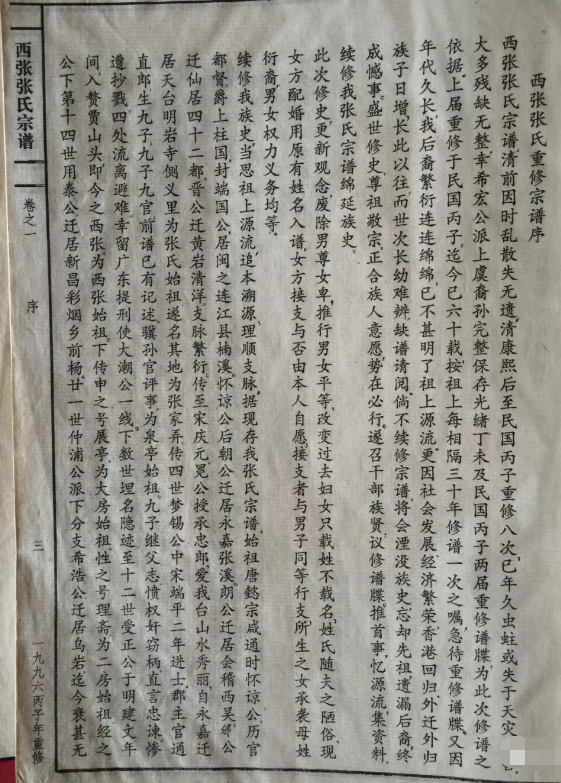 西张张氏重修宗谱序
西张张氏宗谱,清前因时乱散失无遗,清康熙后至民国丙子重修八次,已年久虫蛀或失于天灾,
大多残缺无整,幸希宏公派上虞裔孙完整保存光绪丁未及民国丙子两届重修谱牒,为此次修谱之
依据。上届重修于民国丙子迄今已六十载,按祖上每相隔三十年修谱一次之嘱,急待重修谱牒。又因
年代久长,我后裔繁衍连连绵绵,已不甚明了祖上源流,更因社会发展,经济繁荣,香港回归,外迁外归
族子日增,长此以往,而世次长幼难辨,缺谱请阅。倘不续修宗谱,将会湮没族史,忘却先祖,遗漏后裔,终
成憾事。盛世修史,尊祖敬宗,正合族人意愿,势在必行。遂召干部族贤,议修谱牒。推首事,忆源流,集资料,
续修我张氏宗谱,绵延族史。
此次修史,更新观念,废除男尊女卑,推行男女平等,改变过去妇女只载姓不载名,姓氏随夫之陋俗,现
女方配婚用原有姓名入谱,女方接支与否由本人自愿,接支者与男子同等行支,所生之女承袭母姓
衍裔,男女权力义务均等。
续修我族史,当思祖上源流,追本溯源,理顺支脉,据现存我张氏宗谱,始祖唐懿宗咸通时怀谅公,历官
都督,爵上柱国,封端国公,居闽之连江县楠溪,怀谅公后朝公迁居永嘉张溪,朗公迁居会稽西吴,郊公
迁仙居四十二都,晋公迁黄岩清洋,支脉繁衍。传至宋庆元冕公授承忠郎,爱我台山水秀丽,自永嘉迁
居天台明岩寺侧义里,为张氏始祖,遂名其地为张家弄,传四世梦锡公中宋端平二年进士,郡主官通
直郎,生九子,九子九官,前谱已有记述,骥孙官评事,为泉亭始祖。九子继父志,愤权奸窃柄,直言忠谏,惨
遭抄戮,四处流离避难,幸留广东提刑使大潮公一线。下数世埋名隐迹,至十二世受正公于明建文年
间入赘贾山头,即今之西张,为西张始祖。下传申之号展亭,为大房始祖,性之号理斋,为二房始祖,经之
公下第十四世用泰公迁居新昌彩烟乡前杨,廿一世仲浦公派下分支希浩公迁居乌岩,迄今裒甚无
西张张氏宗谱
卷之一
序
三
一九九六丙子年重修